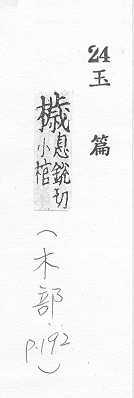 24
玉篇
檅
息銳切
小棺
(木部
p.192)